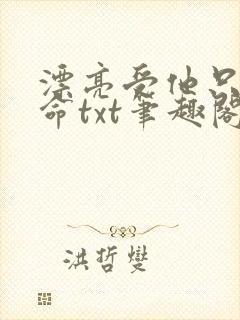 漂亮受他只
命txt笔趣阁
洪哲燮